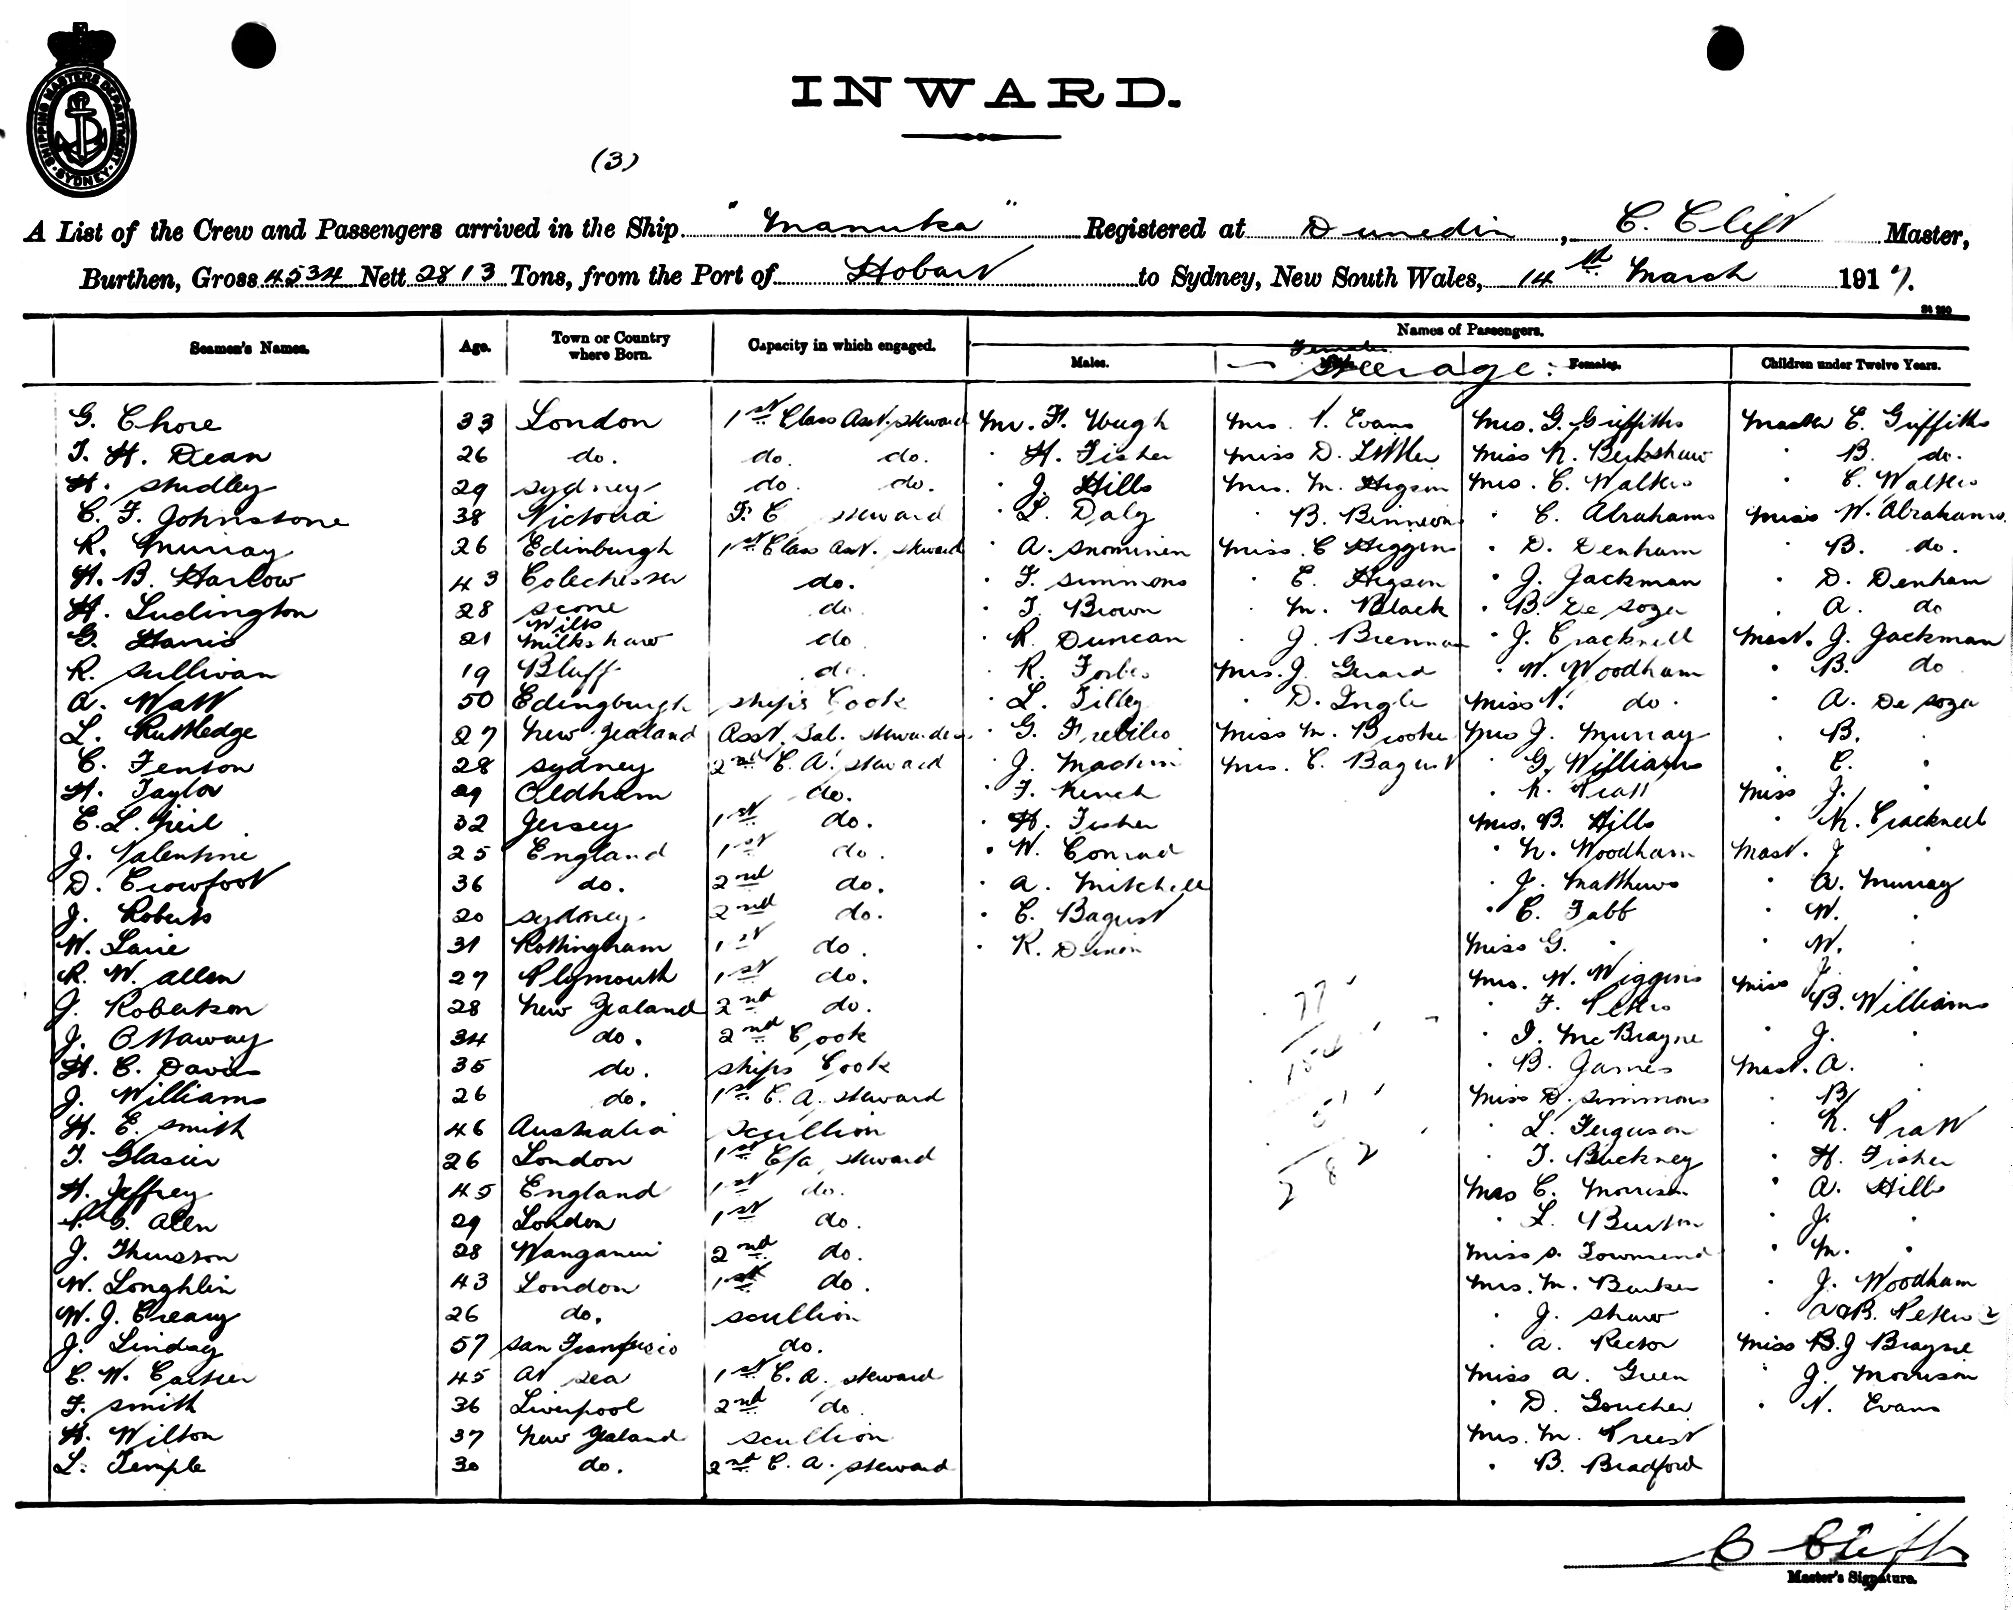 SHIPPING MASTERS DEPARTMENT SYDNEY
INWARD.
(3)
A List of the Crew and Passengers arrived in the Ship "Manuka" Registered at Dunedin, C. Clift Master,
Burthen, Gross 4534 Nett 2813 Tons, from the Port of Hobart to Sydney, New South Wales, 14th March 1917.
Seamen's Names. Age. Town or Country where Born. Capacity in which engaged. Names of Passengers.
Males. Females Steerage: Females. Children under Twelve Years.
G. Chore 33 London 1st Class Asst. Steward Mr. F. Waugh Mrs. Evans Mrs. G. Griffiths Master C. Griffiths
T. H. Dean 26 do. do. do. " H. Fisher Miss D. Miss K. Berkshaw " B. do.
H. Studley 29 Sydney do. do. " J. Hills Mrs. M. Higson Mrs. C. Walkis " C. Walkis
C. F. Johnstone 38 Victoria F. C Steward " L. Daly " B. Binneons " C. Abrahams Miss W. Abrahams
R. Murray 26 Edinburgh 1st Class Asst. Steward " A. Snominen Miss C Higgins " D. Denham " B. do.
H. B. Harlow 43 Colechester do. " F. Simmons " E. Higson " J. Jackman " D. Denham
H. Ludington 28 Scone do " T. Brown " M. Black " B. De Soza " A. do
G. Harris 21 Wilts Milkshaw do " R. Duncan " J. Brennan " J. Cracknell Mast. J. Jackman
R. Sullivan 19 Bluff do. " R. Forbes Mrs. J. Gerard " W. Woodham " B. do
A. Watt 50 Edingburgh Ships Cook " L. Tilley " D. Ingle Miss N. do. " A. De Soza
L. Rutledge 27 New Zealand Asst. Sal. Stewardess " G. Miss M. Brooke Mrs J. Murray " B. "
C. Fenton 28 Sydney 2nd C. A. Steward " J. Mackin Mrs. C. Bagust " G. Williams " C. "
H. Taylor 29 Oldham do. " F. Kench " K. Pratt Miss J. "
E. L. Neil 32 Jersey 1st do. " H. Fisher Mrs. B. Hills " K. Cracknell
J. Valentine 25 England 1st do. " W. Conrad " N. Woodham Mast. J "
D. Crowfoot 36 do. 2nd do. " A. Mitchell " J. Matthews " A. Murray
J. Roberts 20 Sydney 2nd do. " C. Bagust " C. Tabb " W. "
W. Larie 31 Nottingham 1st do. " R. Dixon Miss G. " " W. "
R. W. Allen 27 Plymouth 1st do. Mrs. W. Wiggins Miss J. "
J. Robertson 28 New Zealand 2nd do. 77 " F. Peters " B. Williams
J. Ottaway 34 do. 2nd Cook " J. McBrayne " J. "
H. C. Davis 35 do. Ships Cook 154 " B. James Mast. A. "
J. Williams 26 do. 1st C. A. Steward 51 Miss D. Simmons " B. "
H. E. Smith 46 Australia Scullion " L. Ferguson " K. Pratt
T. Glasier 26 London 1st C/a Steward 282 " T. Buckney " H. Fisher
H. Jeffrey 45 England 1st do. Mrs C. Morrison " A. Hills
G. Allen 29 London 1st do. " L. Burton " J. "
J. Thurston 28 Wanganui 2nd do. Miss S. Townsend " M. "
W. Loughlin 43 London 1st do. Mrs. M. Barker " J. Woodham
W. J. Creary 26 do. Scullion " J. Shaw " B. Peters 2
J. Linday 57 San Francisco do. " A. Rector Miss B. J Brayne
C. W. Carter 45 At Sea 1st C. A. Steward Miss A. Green " J. Morrison
F. Smith 36 Liverpool 2nd do. " D. Goucher " N. Evans
H. Wilton 37 New Zealand Scullion Mrs. M. Priest
L. Temple 30 do. 2nd C. A. Steward " B. Bradford
C Clift
Master's Signature.